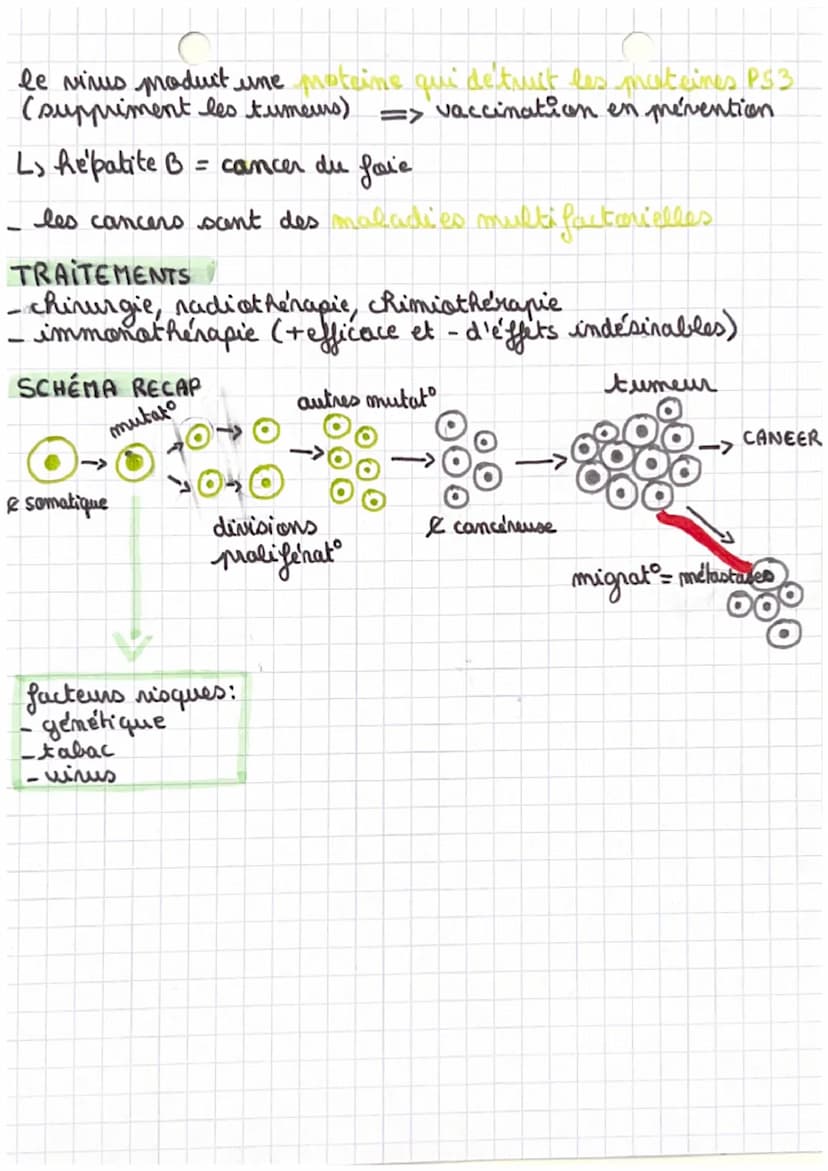 le virus produit une proteine qui détruit les proteines PS3
(suppriment les tumeurs) => vaccination en prévention
↳ hépatite B = cancer du foie
- les cancers sont des maladies multifactorielles
TRAITEMENTS
- chirurgie, radiothérapie, chimiothérapie
- immonothérapie (+efficace et - d'éffets indésirables)
SCHÉMA RECAP
mutat°
autres mutat°
tumeur
→ CANEER
¢ somatique
divisions
proliférat°
¢ cancéreuse
migrat° = métastases
facteurs risques:
- génétique
- tabac
- virus